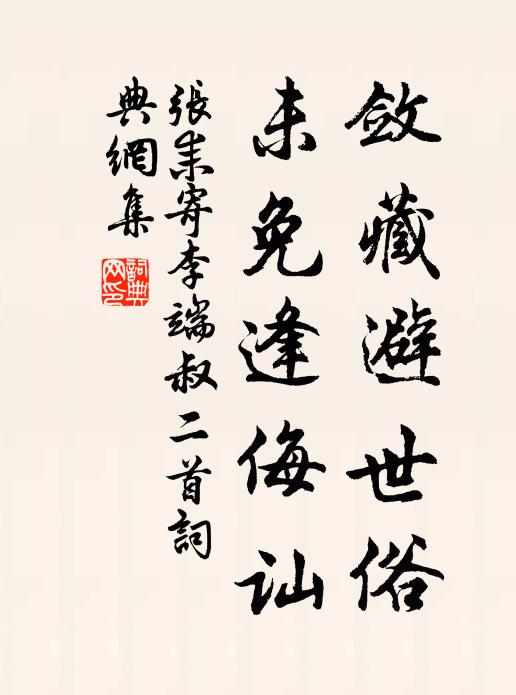 斂藏避世俗
未免逢侮訕
張耒寄李端叔二首詞
典網集
詞典
网印